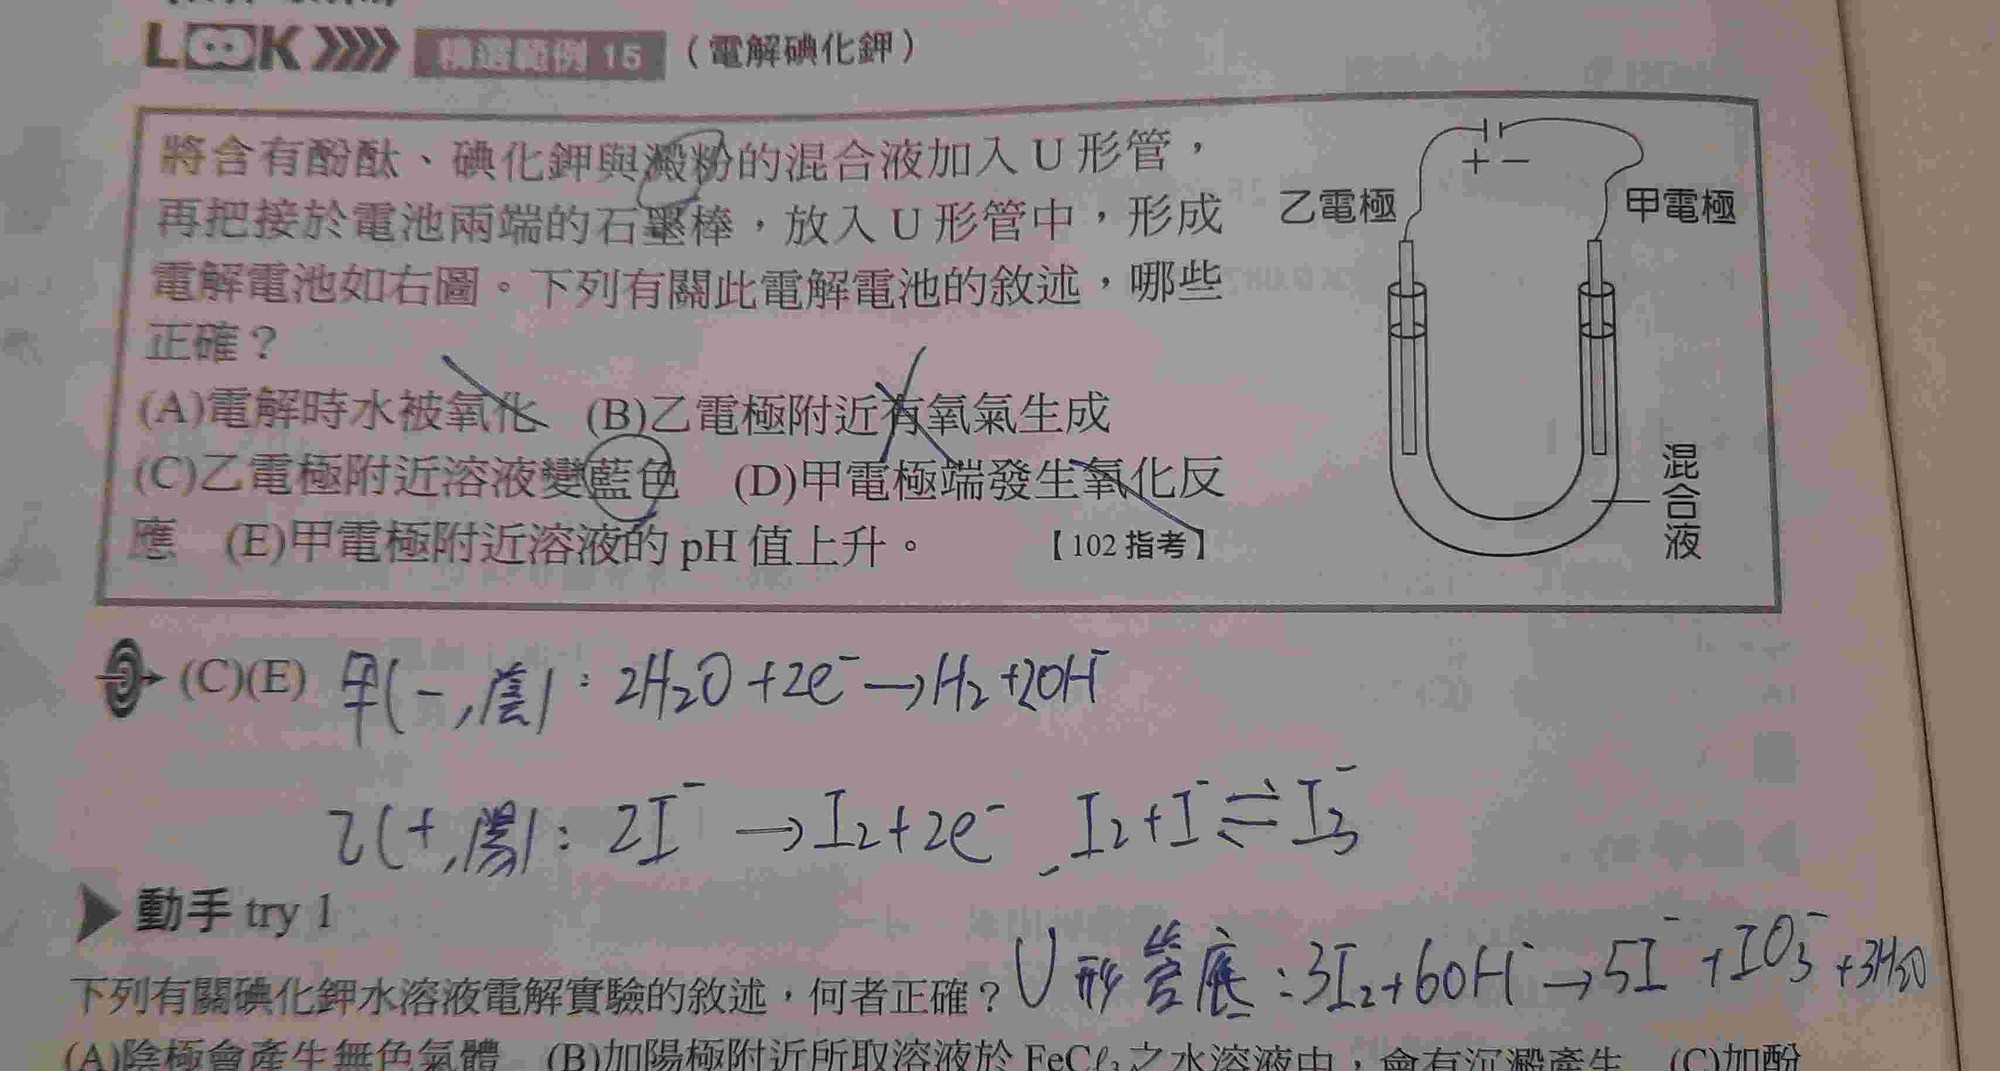 LOOK 精選範例 15 (電解碘化鉀)
將含有酚酞、碘化鉀與澱粉的混合液加入 U 形管,
再把接於電池兩端的石墨棒,放入 U 形管中,形成
電解電池如右圖。下列有關此電解電池的敘述,哪些
正確?
(A)電解時水被氧化 (B)乙電極附近有氧氣生成
(C)乙電極附近溶液變藍色 (D)甲電極端發生氧化反
應 (E)甲電極附近溶液的 pH 值上升。 【102 指考】
+ −
乙電極 甲電極
混合液
(C)(E) 甲(−,陰): 2H₂O + 2e⁻ → H₂ + 2OH⁻
乙(+,陽): 2I⁻ → I₂ + 2e⁻, I₂ + I⁻ ⇌ I₃⁻
動手 try 1
U 形管底: 3I₂ + 6OH⁻ → 5I⁻ + IO₃⁻ + 3H₂O
下列有關碘化鉀水溶液電解實驗的敘述,何者正確?
(A)陰極會產生無色氣體 (B)加陽極附近所取溶液於 FeCℓ₃ 之水溶液中,會有沉澱產生 (C)加酚